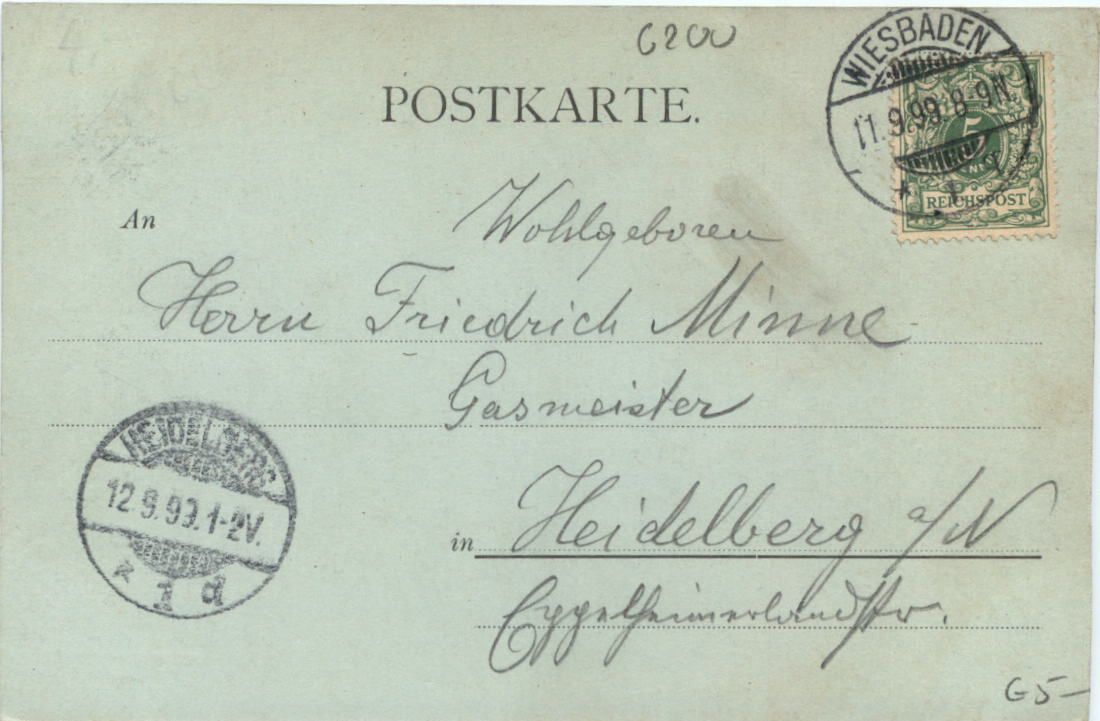 6200
POSTKARTE.
WIESBADEN
11.9.99.8-9N.
* 1
5
REICHSPOST
An
Wohlgeboren
Herrn Friedrich Minne
Gasmeister
in Heidelberg a/N
Eppelheimerlandstr.
HEIDELBERG
12.9.99.1-2V.
* 1 d
65-